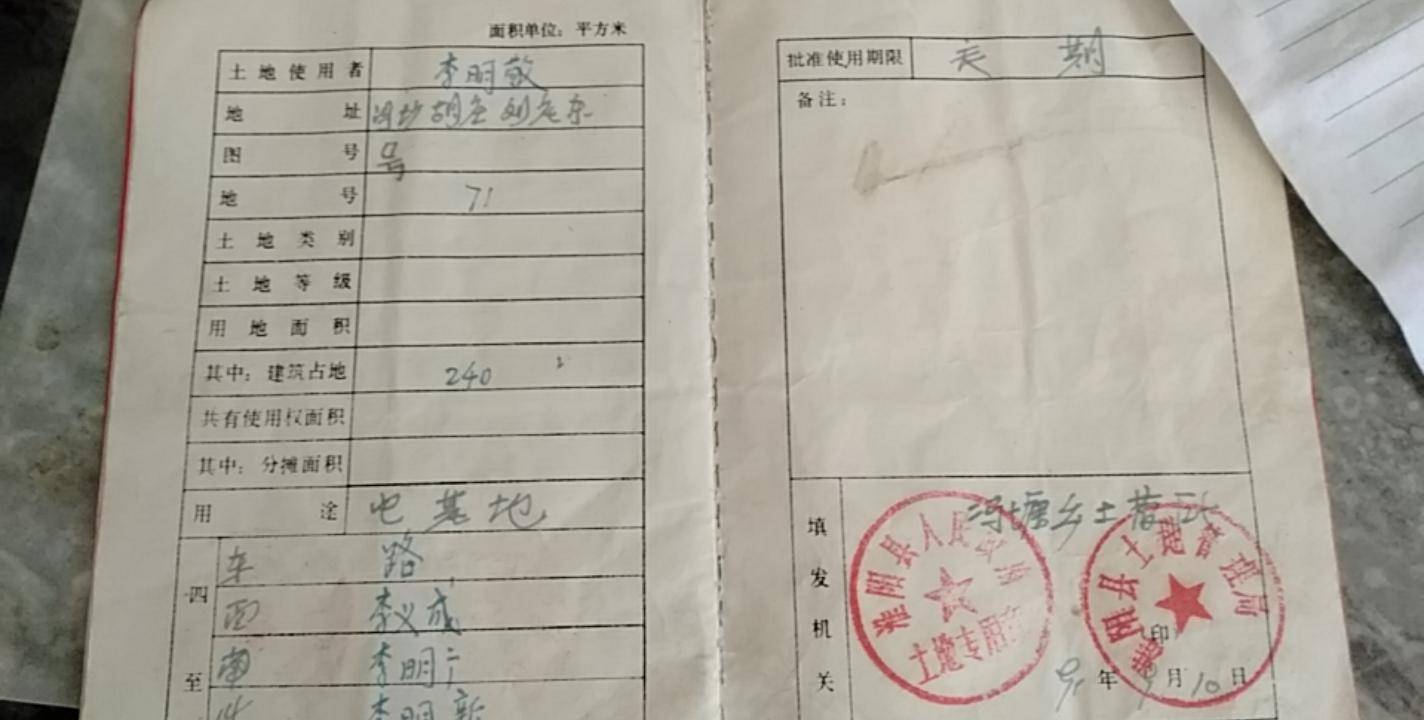 面积单位：平方米
土地使用者 李明敬
地址 冯塘胡庄刘老家
图号 号
地号 71
土地类别
土地等级
用地面积
其中：建筑占地 240
共有使用权面积
其中：分摊面积
用途 宅基地
四至
东 路
西 李义成
南 李明广
北 李明新
批准使用期限 长期
备注：
填发机关 冯塘乡土管所
淮阳县人民政府
土地专用章
淮阳县土地管理局
（印）
91年9月10日